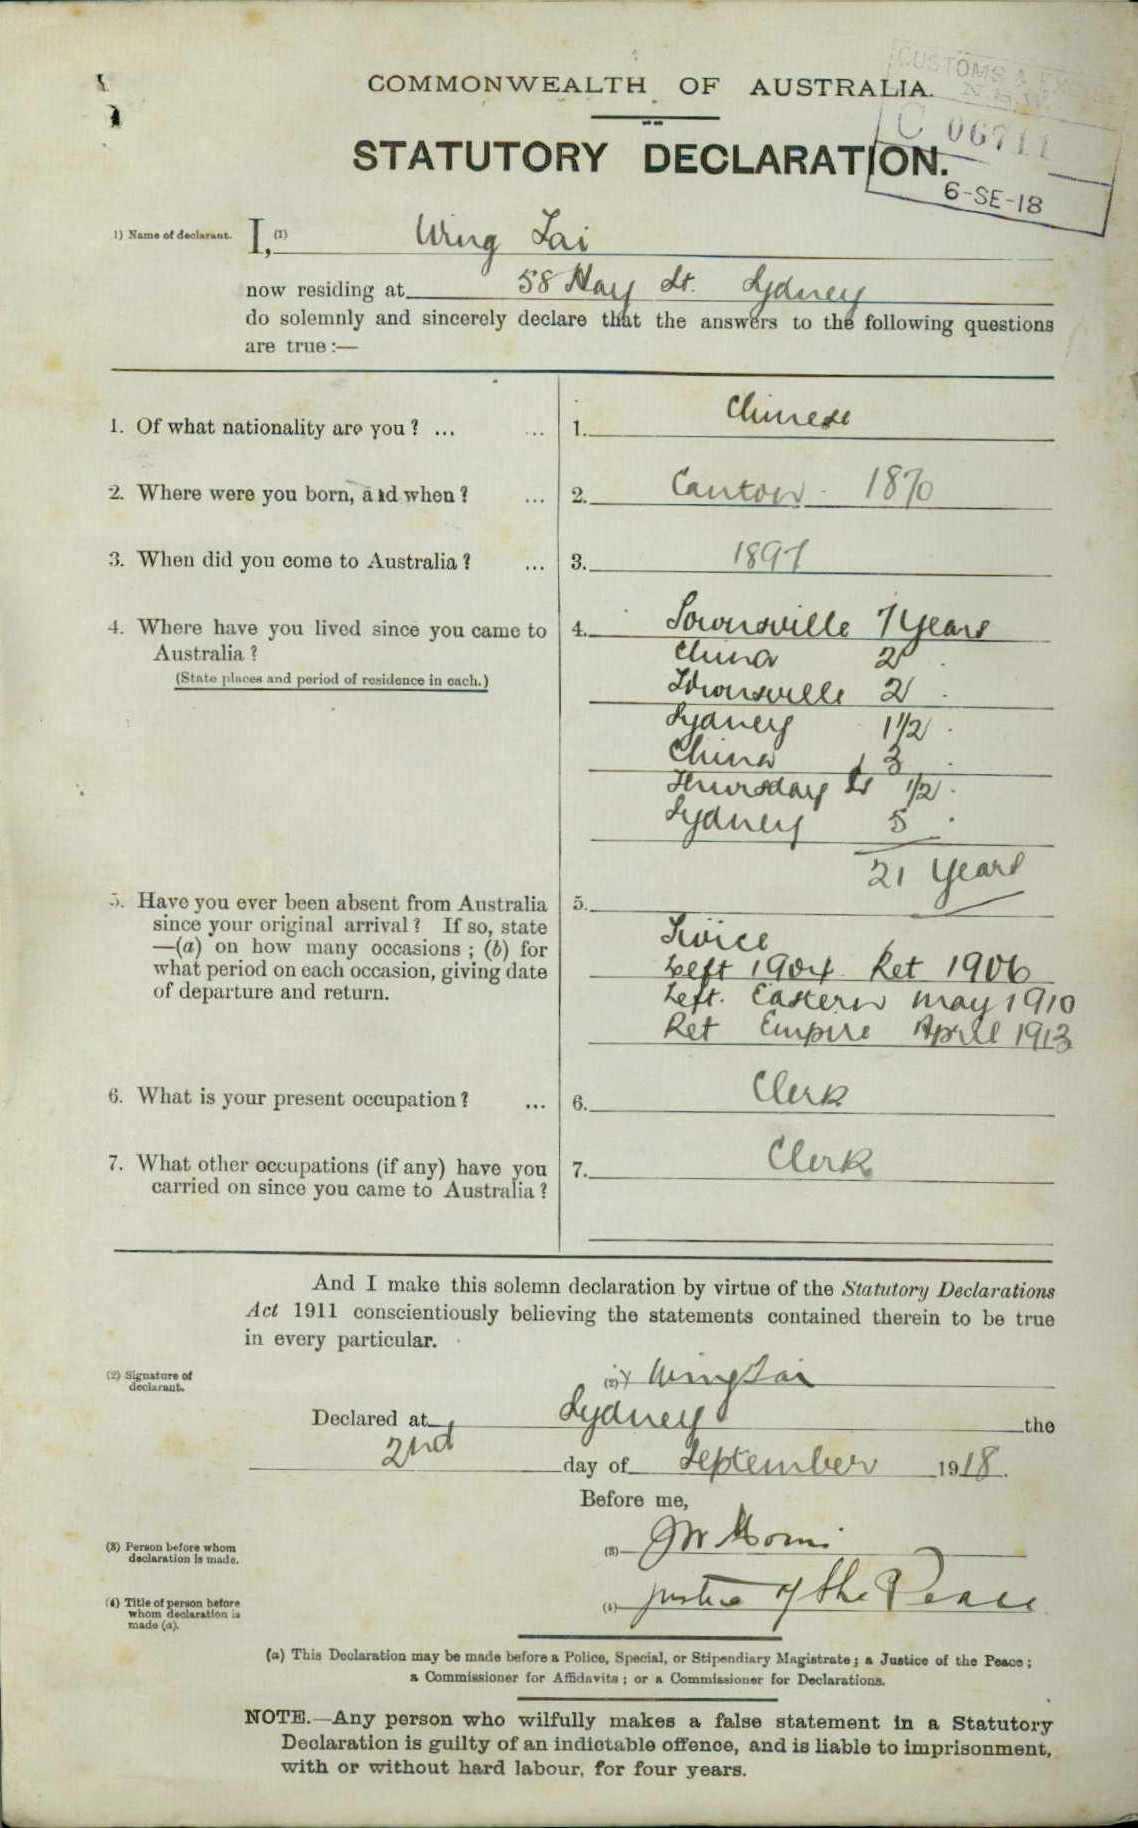 COMMONWEALTH OF AUSTRALIA.
CUSTOMS &
C 06711
6-SE-18
STATUTORY DECLARATION.
1) Name of declarant. I, (1) Wing Tai
now residing at 58 Hay St. Sydney
do solemnly and sincerely declare that the answers to the following questions
are true :—
1. Of what nationality are you ? ... ... 1. Chinese
2. Where were you born, and when ? ... 2. Canton 1870
3. When did you come to Australia ? ... 3. 1897
4. Where have you lived since you came to 4. Townsville 7 Years
Australia ? China 2 "
(State places and period of residence in each.) Townsville 2 "
Sydney 1 1/2 "
China 3 "
Thursday Is 1/2 "
Sydney 5 "
21 Years
5. Have you ever been absent from Australia 5.
since your original arrival ? If so, state Twice
—(a) on how many occasions ; (b) for
what period on each occasion, giving date Left 1904 Ret 1906
of departure and return. Left. Eastern May 1910
Ret Empire April 1913
6. What is your present occupation ? ... 6. Clerk
7. What other occupations (if any) have you 7. Clerk
carried on since you came to Australia ?
And I make this solemn declaration by virtue of the Statutory Declarations
Act 1911 conscientiously believing the statements contained therein to be true
in every particular.
(2) Signature of declarant. (2) x Wing Tai
Declared at Sydney the
2nd day of September 1918.
Before me,
(3) Person before whom declaration is made. (3) JW
(4) Title of person before whom declaration is made (a). (4) Justice of the Peace
(a) This Declaration may be made before a Police, Special, or Stipendiary Magistrate ; a Justice of the Peace ;
a Commissioner for Affidavits ; or a Commissioner for Declarations.
NOTE.—Any person who wilfully makes a false statement in a Statutory
Declaration is guilty of an indictable offence, and is liable to imprisonment,
with or without hard labour, for four years.